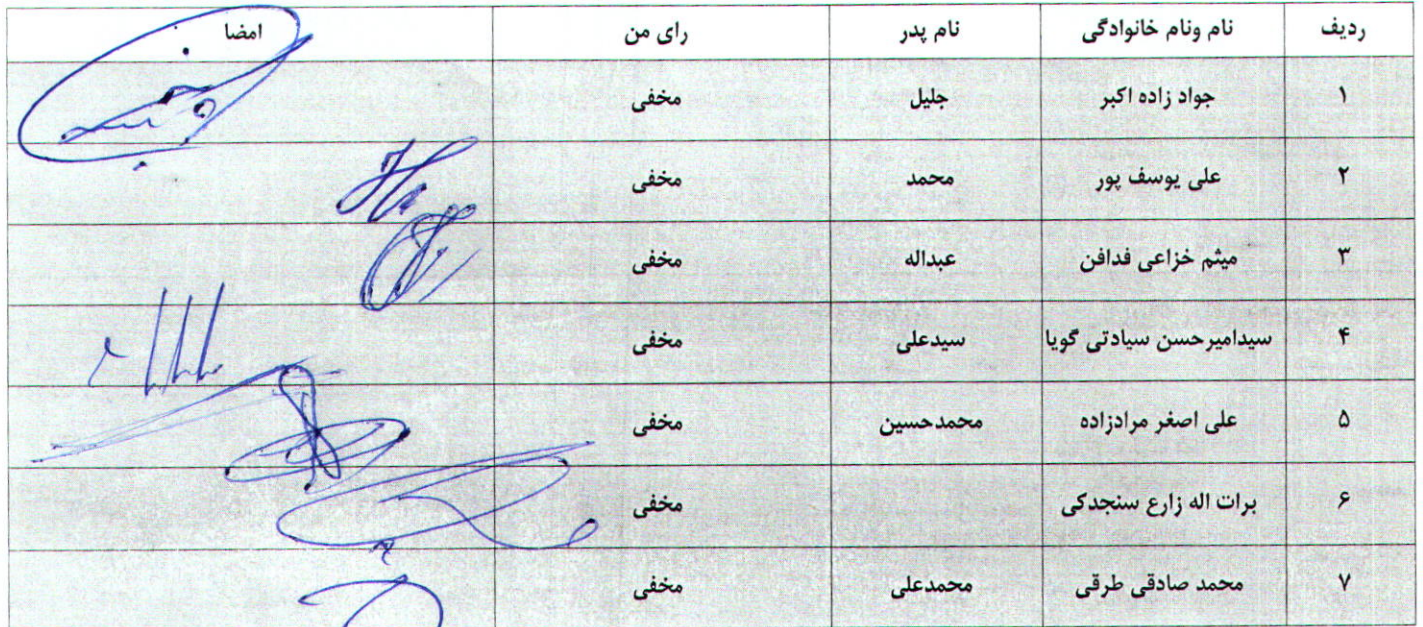 ردیف نام ونام خانوادگی نام پدر رای من امضا
۱ جواد زاده اکبر جلیل مخفی
۲ علی یوسف پور محمد مخفی
۳ میثم خزاعی فدافن عبداله مخفی
۴ سیدامیرحسن سیادتی گویا سیدعلی مخفی
۵ علی اصغر مرادزاده محمدحسین مخفی
۶ برات اله زارع سنجدکی مخفی
۷ محمد صادقی طرقی محمدعلی مخفی